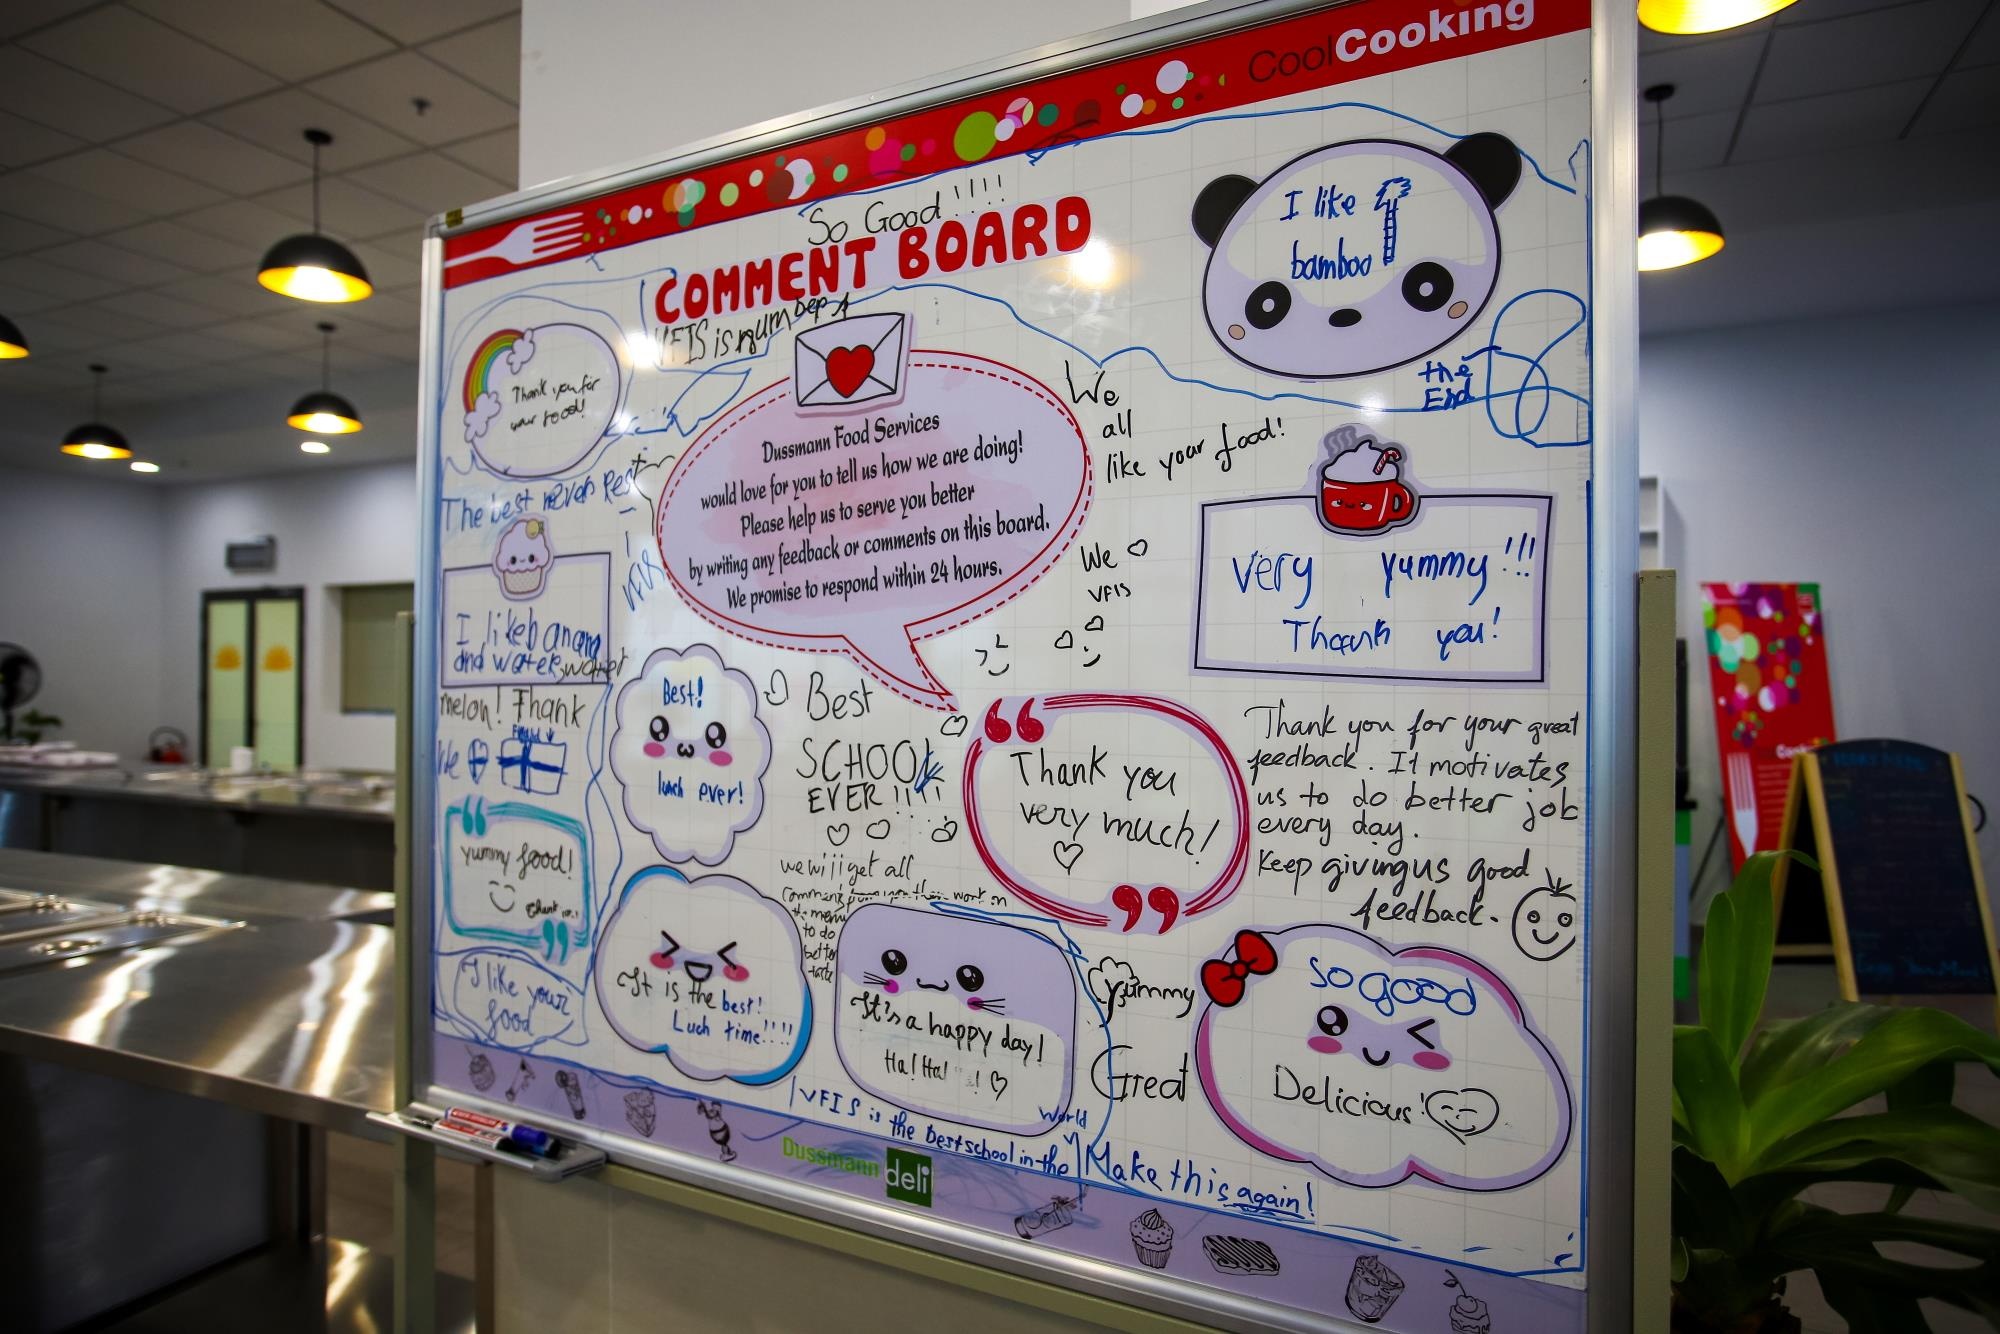 CoolCooking
So Good!!!!
COMMENT BOARD
VFIS is
I like
bamboo
the
End
Thank you for
your food!
The best never Rest
VFIS
Dussmann Food Services
would love for you to tell us how we are doing!
Please help us to serve you better
by writing any feedback or comments on this board.
We promise to respond within 24 hours.
We
all
like your food!
We
VFIS
Very yummy!!!
Thank you!
I like banana
and water, water
melon! Thank
We
Best!
lunch ever!
Best
SCHOOL
EVER!!!!
Thank you
very much!
Thank you for your great
feedback. It motivates
us to do better job
every day.
Keep giving us good
feedback.
yummy food!
I like your
food
we will get all
the menu
to do
better
taste
It is the best!
Luch time!!!!
It's a happy day!
Ha! Ha!
Yummy
Great
So good
Delicious!
VFIS is the best school in the world
Make this again!
Dussmann deli